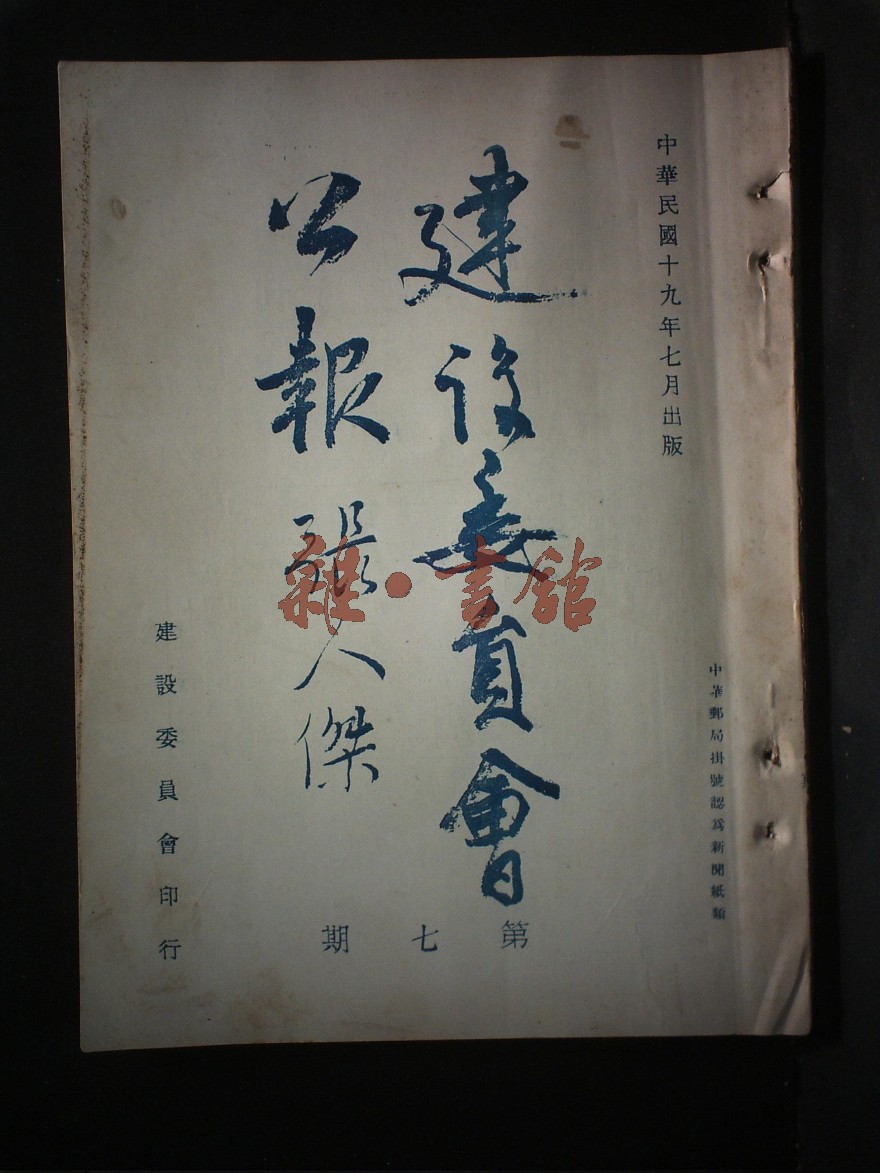 中華郵局掛號認爲新聞紙類
中華民國十九年七月出版
建設委員會
公報
張人傑
第七期
建設委員會印行
雜·書館